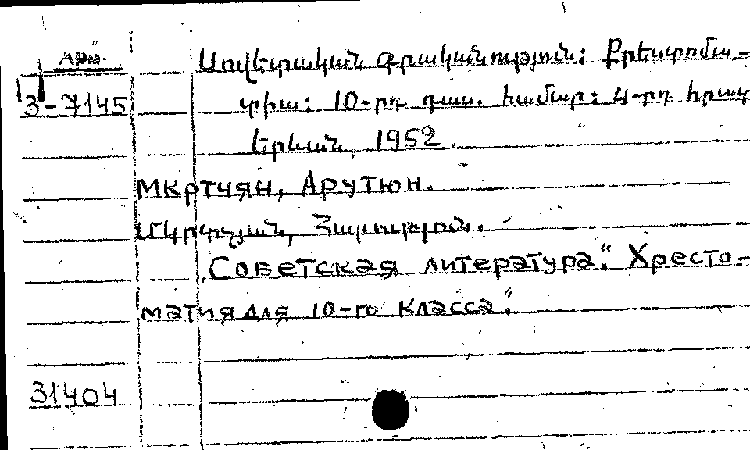 Арм.
Սովետական գրականություն: Քրեստոմա-
3-7145
տիա: 10-րդ դաս. համար: 4-րդ հրատ
Երևան, 1952.
Мкртчян, Арутюн.
Մկրտչյան, Հարություն.
"Советская литература". Хресто-
матия для 10-го класса".
31404